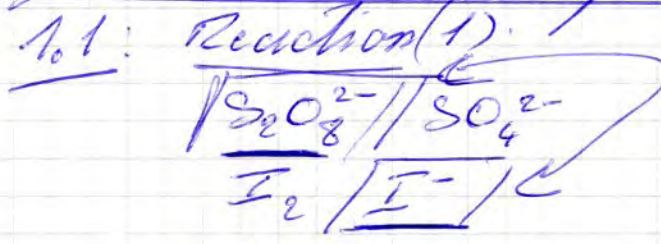 1.1: Reaction (1).
S₂O₈²⁻ / SO₄²⁻
I₂ / I⁻